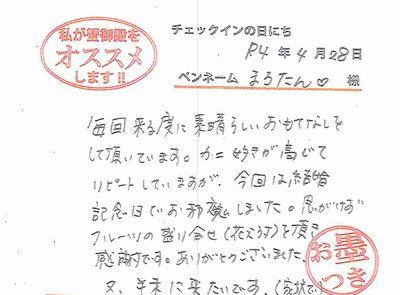 私が蟹御殿を
オススメ
します!!
チェックインの日にち
R4年4月28日
ペンネーム まろたん♡ 様
毎回来る度に素晴らしいおもてなしを
して頂いています。カニ好きが高じて
リピートしていますが、今回は結婚
記念日でお邪魔しました。思いがけず
フルーツの盛り合せ(花火付)を頂き
感謝です。ありがとうございました。
又、年末に来たいです。(家族で
お墨
つき